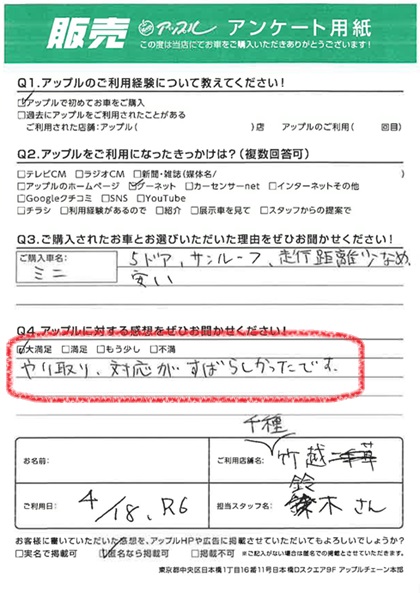 販売 アップル アンケート用紙
この度は当店にてお車をご購入いただきありがとうございます!
Q1.アップルのご利用経験について教えてください!
アップルで初めてお車をご購入
□過去にアップルをご利用されたことがある
ご利用された店舗:アップル( )店 アップルのご利用( 回目)
Q2.アップルをご利用になったきっかけは?(複数回答可)
□テレビCM □ラジオCM □新聞・雑誌(媒体名/ )
□アップルのホームページ グーネット □カーセンサーnet □インターネットその他
□Googleクチコミ □SNS □YouTube
□チラシ □利用経験があるので □紹介 □展示車を見て □スタッフからの提案で
Q3.ご購入されたお車とお選びいただいた理由をぜひお聞かせください!
ご購入車名:
ミニ
5ドア、サンルーフ、走行距離少なめ、
安い
Q4.アップルに対する感想をぜひお聞かせください!
大満足 □満足 □もう少し □不満
やり取り、対応がすばらしかったです。
千種
お名前:
ご利用店舗名:
竹越
ご利用日:
4/18、R6
担当スタッフ名:
鈴
木さん
お客様に書いていただいた感想を、アップルHPや広告に掲載させていただいてもよろしいでしょうか?
□実名で掲載可 匿名なら掲載可 □掲載不可 ※ご記入がない場合は匿名での掲載とさせていただきます。
東京都中央区日本橋1丁目16番11号日本橋ロスクエア9F アップルチェーン本部